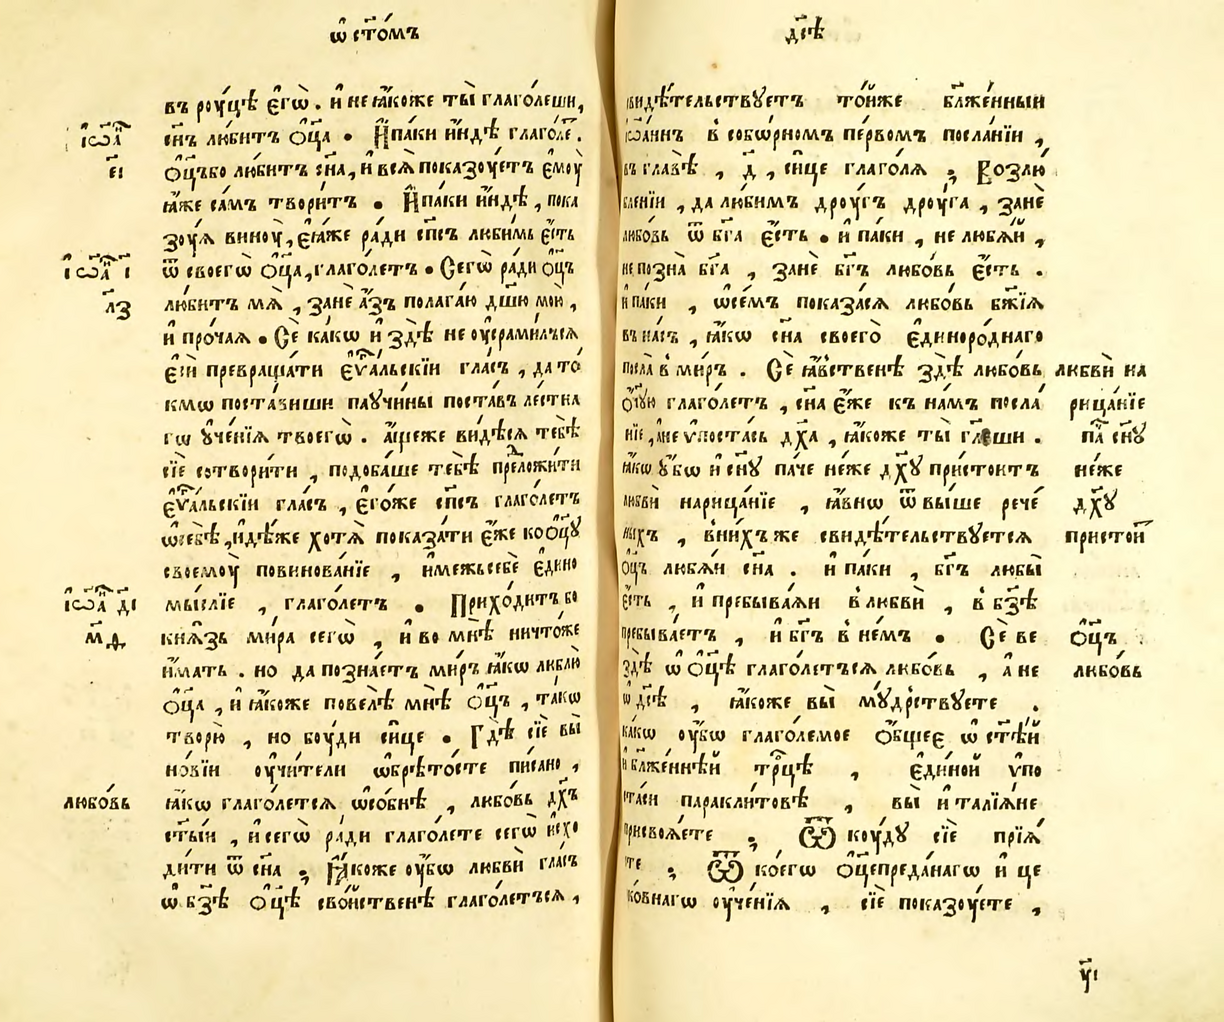 ѡ҆ ст҃о́мъ
въ роу́цѣ є҆гѡ̀ . и҆ не ꙗ҆́коже ты̀ глаго́леши,
і҆ѡа҃
сн҃ъ лю́битъ ѻ҆ц҃а̀ . И҆па́ки и҆́ндѣ глаго́ле .
є҃і
Ѻ҆ц҃ъ бо лю́битъ сн҃а, и҆ всѧ̀ показоу́етъ є҆моу̀
ꙗ҆́же са́мъ твори́тъ . И҆па́ки и҆́ндѣ , пока
зоу́ѧ виноу̀, є҆ѧ́же ра́ди сп҃съ люби́мь є҆́сть
і҆ѡа҃ і҃
ѿ своегѡ̀ ѻ҆ц҃а, глаго́летъ . Сегѡ̀ ра́ди ѻ҆ц҃ъ
л҃з
лю́битъ мѧ̀ , занѐ а҆́зъ полага́ю дш҃ю мою̀ ,
и҆ про́чаѧ . Сѐ ка́кѡ и҆ здѣ̀ не оу҆срами́лъсѧ
є҆сѝ превраща́ти є҆ѵ҃альскїи гла́съ , да то́
кмѡ поста́виши паꙋчи́ны поста́въ ле́стна
гѡ ᲂу҆че́нїѧ твоегѡ̀ . а҆́щеже ви́дѣсѧ тебѣ̀
сїѐ сотвори́ти , подоба́ше тебѣ̀ преложи́ти
є҆ѵ҃альскїи гла́съ , є҆го́же сп҃съ глаго́летъ
ѡ҆себѣ̀ ,и҆дѣ́же хотѧ̀ показа́ти є҆́же ко ѻ҆ц҃ꙋ̀
своемоу̀ повинова́нїе , и҆межꙋсебѐ є҆ди́но
і҆ѡа҃ д҃і
мы́слїе , глаго́летъ . Прихо́дитъ бо
м҃д
кнѧ́зь ми́ра сегѡ̀ , и҆ во мнѣ̀ ничто́же
и҆́мать . но да позна́етъ ми́ръ ꙗ҆́кѡ люблю̀
ѻ҆ц҃а , и҆ ꙗ҆́коже повелѣ̀ мнѣ̀ ѻ҆ц҃ъ , та́кѡ
творю̀ , но боу́ди си́це . Гдѣ̀ сїѐ вы̀
но́вїи оу҆чи́тели ѡ҆брѣ́тосте пи́сано ,
любо́вь
ꙗ҆́кѡ глаго́летсѧ ѡ҆со́бнѣ , любо́вь дх҃ъ
ст҃ы́и , и҆ сегѡ̀ ра́ди глаго́лете сегѡ̀ и҆схо
ди́ти ѿ сн҃а ; Ꙗ҆́коже оу҆́бѡ любвѝ гла́съ
ѡ҆ бз҃ѣ ѻ҆ц҃ѣ̀ сво́йственѣ глаго́летъсѧ ,
дс҃ѣ
свидѣ́тельствꙋетъ то́йже бл҃же́нный
і҆ѡа́ннъ в собо́рномъ пе́рвомъ посла́нїи ,
въ главѣ̀ , д҃ , си́це глаго́лѧ ; Возлю́
бленїи , да лю́бимъ дроу́гъ дроу́га , занѐ
любо́вь ѿ бг҃а є҆́сть . и҆ па́ки , не любѧ́й ,
не позна̀ бг҃а , занѐ бг҃ъ любо́вь є҆́сть .
и҆ па́ки , ѡ҆се́мъ показа́сѧ любо́вь бж҃їѧ
въ на́съ , ꙗ҆́кѡ сн҃а своего̀ є҆диноро́днаго
посла̀ в ми́ръ . Сѐ ꙗ҆́вственѣ здѣ̀ любо́вь
любвѝ на
ѻ҆́ч҃ꙋю глаго́летъ , сн҃а є҆́же къ на́мъ посла́
рица́нїе
нїе , а҆ не ѵ҆поста́сь дх҃а , ꙗ҆́коже ты̀ гл҃еши .
па҃ сн҃ꙋ
ꙗ҆́кѡ ᲂу҆́бѡ и҆ сн҃ꙋ па́че не́же дх҃ꙋ присто́итъ
не́же
любвѝ нарица́нїе , ꙗ҆́внѡ ѿ вы́ше рече́
дх҃ꙋ
нныхъ , в ни́хъже свидѣ́тельствꙋетсѧ
присто́и
ѻ҆ц҃ъ любѧ́и сн҃а . и҆ па́ки , бг҃ъ любы̀
є҆́сть , и҆ пребыва́ѧи в любвѝ , в бз҃ѣ
пребыва́етъ , и҆ бг҃ъ в не́мъ . Сѐ ве
ѻ҆ц҃ъ
здѣ̀ ѡ҆ ѻ҆ц҃ѣ̀ глаго́летъсѧ любо́вь , а҆ не
любо́вь
ѡ҆ дс҃ѣ , ꙗ҆́коже вы̀ мꙋ́дрствꙋете .
ка́кѡ оу҆́бѡ глаго́лемое ѻ҆́бщее ѡ҆ ст҃ѣ́й
и҆ бл҃же́ннѣй трⷪ҇цѣ , є҆ди́ной ѵ҆по
ста́си паракли́товѣ , вы̀ и҆талїѧ́не
присвоѧ́ете ; Ѿ коу́дꙋ сїѐ прїѧ́
сте ; Ѿ ко́егѡ ѻ҆ц҃епреда́нагѡ и҆ це
ковнагѡ оу҆че́нїѧ , сїѐ показоу́ете ,
ч҃і